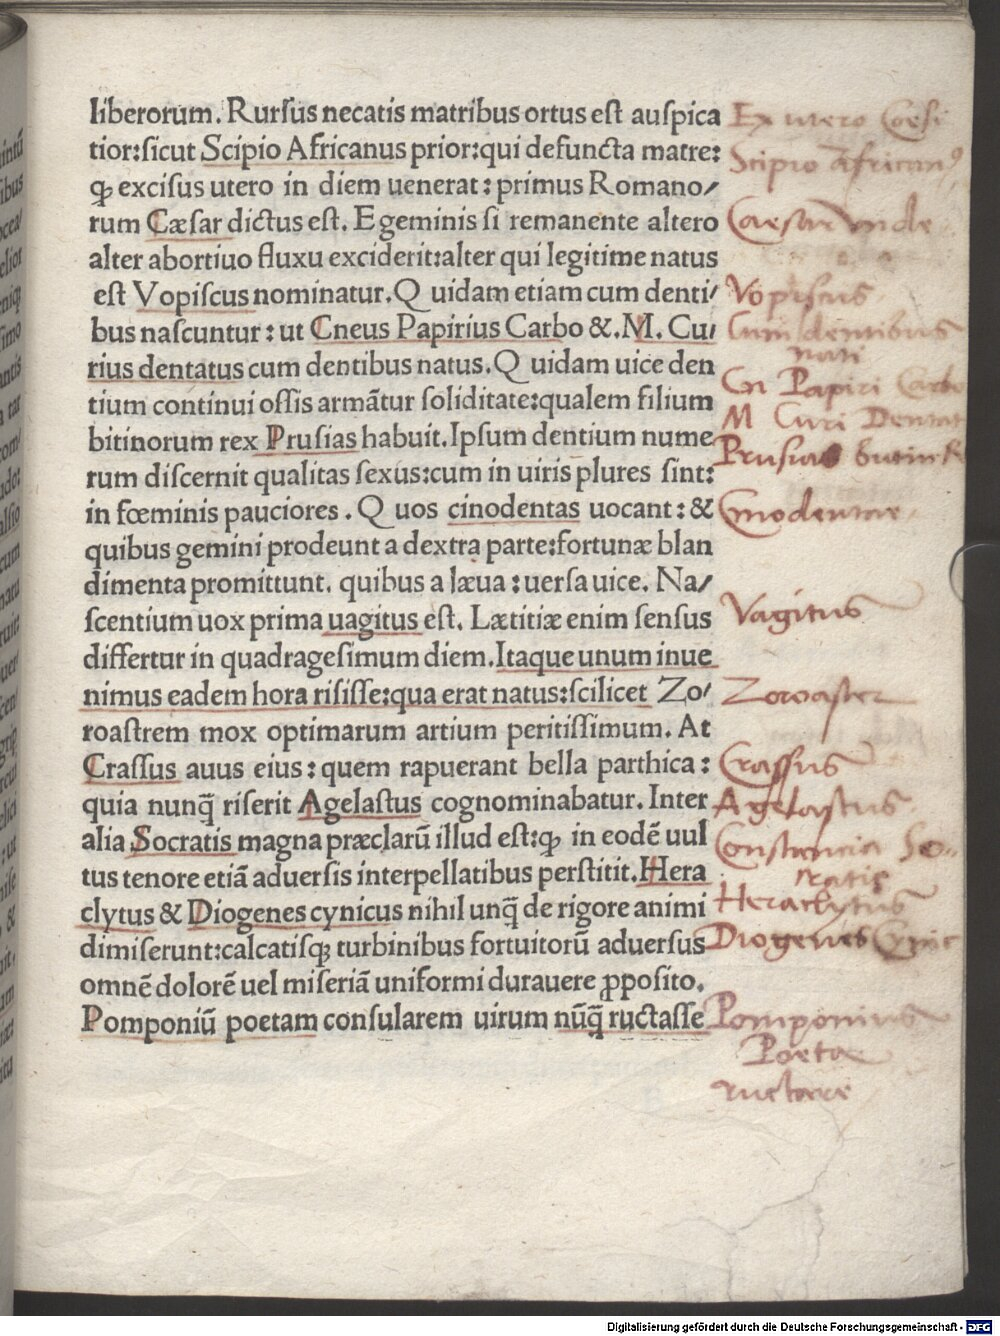 liberorum. Rursus necatis matribus ortus est auspica
tior:sicut Scipio Africanus prior:qui defuncta matre:
ꝙ excisus utero in diem uenerat: primus Romano/
rum Cæsar dictus est. E geminis si remanente altero
alter abortiuo fluxu exciderit:alter qui legitime natus
est Vopiscus nominatur. Quidam etiam cum denti/
bus nascuntur: ut Cneus Papirius Carbo &. M. Cu/
rius dentatus cum dentibus natus. Quidam uice den
tium continui ossis armãtur soliditate:qualem filium
bitinorum rex Prusias habuit. Ipsum dentium nume
rum discernit qualitas sexus:cum in uiris plures sint:
in fœminis pauciores. Quos cinodentas uocant: &
quibus gemini prodeunt a dextra parte:fortunæ blan
dimenta promittunt. quibus a læua: uersa uice. Na/
scentium uox prima uagitus est. Lætitiæ enim sensus
differtur in quadragesimum diem. Itaque unum inue
nimus eadem hora risisse:qua erat natus:scilicet Zo/
roastrem mox optimarum artium peritissimum. At
Crassus auus eius: quem rapuerant bella parthica:
quia nunq̃ riserit Agelastus cognominabatur. Inter
alia Socratis magna præclarũ illud est:ꝙ in eodẽ uul
tus tenore etiã aduersis interpellatibus perstitit. Hera
clytus & Diogenes cynicus nihil unq̃ de rigore animi
dimiserunt:calcatisꝙ turbinibus fortuitorũ aduersus
omnẽ dolorẽ uel miseriã uniformi durauere ꝓposito.
Pomponiũ poetam consularem uirum nũq̃ ructasse
Ex utero Caesi
Scipio Africanus
Caesar unde
Vopiscus
Cum dentibus
nati
Cn Papiri Carbo
M Curi Dentat
Prusias
Cinodentae
Vagitus
Zoroaster
Crassus
Agelastus
Constancia So
cratis
Heraclytus
Diogenes Cynic
Pomponius
Poeta
ructare
Digitalisierung gefördert durch die Deutsche Forschungsgemeinschaft - DFG